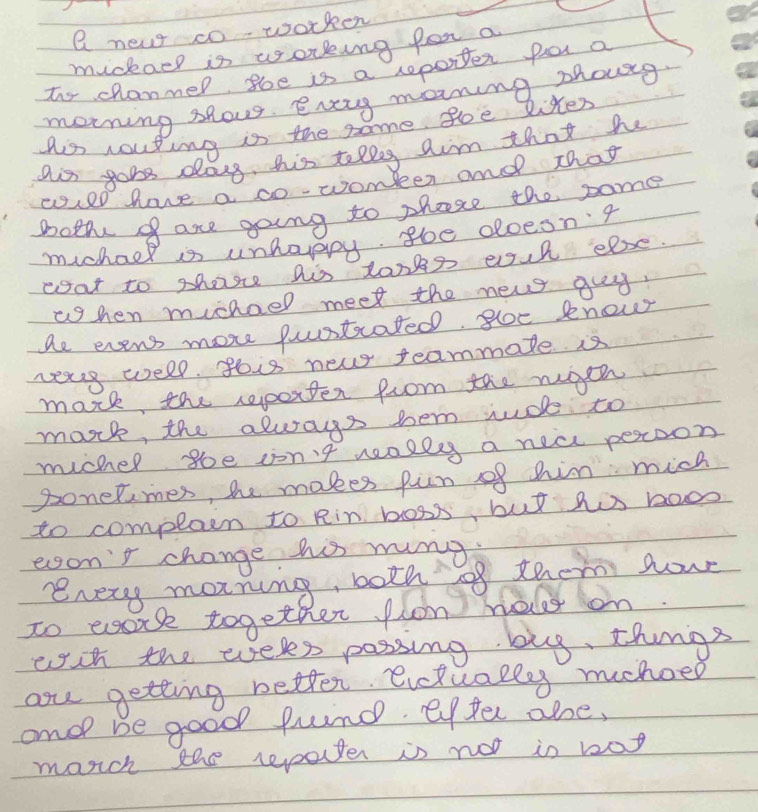 A new co-worker
mickael is working for a
tv channel. He is a reporter fou a
morning show. Every morning showg.
his routing is the same. He likes
his gobs day, his telleg him that he
will have a co-wonker and that
bothe of are going to share the same
michael is unhappy. He doesn't
wat to share his tasks wich else.
When michael meet the new guy,
he evens more fustrated. He know
very well. His new teammate is
mark, the reporter from the nigth
mark, the always bem rude to
michel He isn't really a nice person
sonetimes, he makes fun of hin mich
to complaen to Rin boss, but his boss
won't change his ming.
Every morning, both of them have
to work together fron now on.
With the weeks passing bug, things
are getting better. Actually michael
and be good friend. After abe,
march the reporter is not is bat